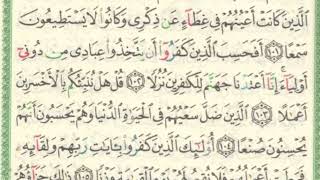 الَّذِينَ كَانَتْ أَعْيُنُهُمْ فِي غِطَاءٍ عَن ذِكْرِي وَكَانُوا لَا يَسْتَطِيعُونَ
سَمْعًا ﴿١٠١﴾ أَفَحَسِبَ الَّذِينَ كَفَرُوا أَن يَتَّخِذُوا عِبَادِي مِن دُونِي
أَوْلِيَاءَ إِنَّا أَعْتَدْنَا جَهَنَّمَ لِلْكَافِرِينَ نُزُلًا ﴿١٠٢﴾ قُلْ هَلْ نُنَبِّئُكُم بِالْأَخْسَرِينَ
أَعْمَالًا ﴿١٠٣﴾ الَّذِينَ ضَلَّ سَعْيُهُمْ فِي الْحَيَاةِ الدُّنْيَا وَهُمْ يَحْسَبُونَ أَنَّهُمْ
يُحْسِنُونَ صُنْعًا ﴿١٠٤﴾ أُولَٰئِكَ الَّذِينَ كَفَرُوا بِآيَاتِ رَبِّهِمْ وَلِقَائِهِ